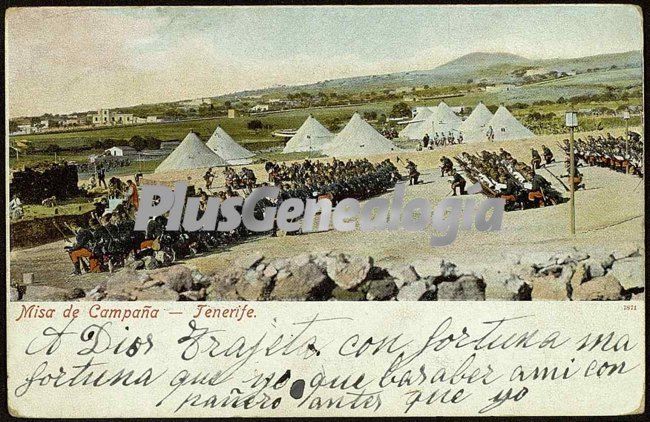 PlusGenealogía
Misa de Campaña — Tenerife.
A Dios Trajeta con fortuna ma
fortuna que yo que bas a ber a mi con
pañero antes que yo